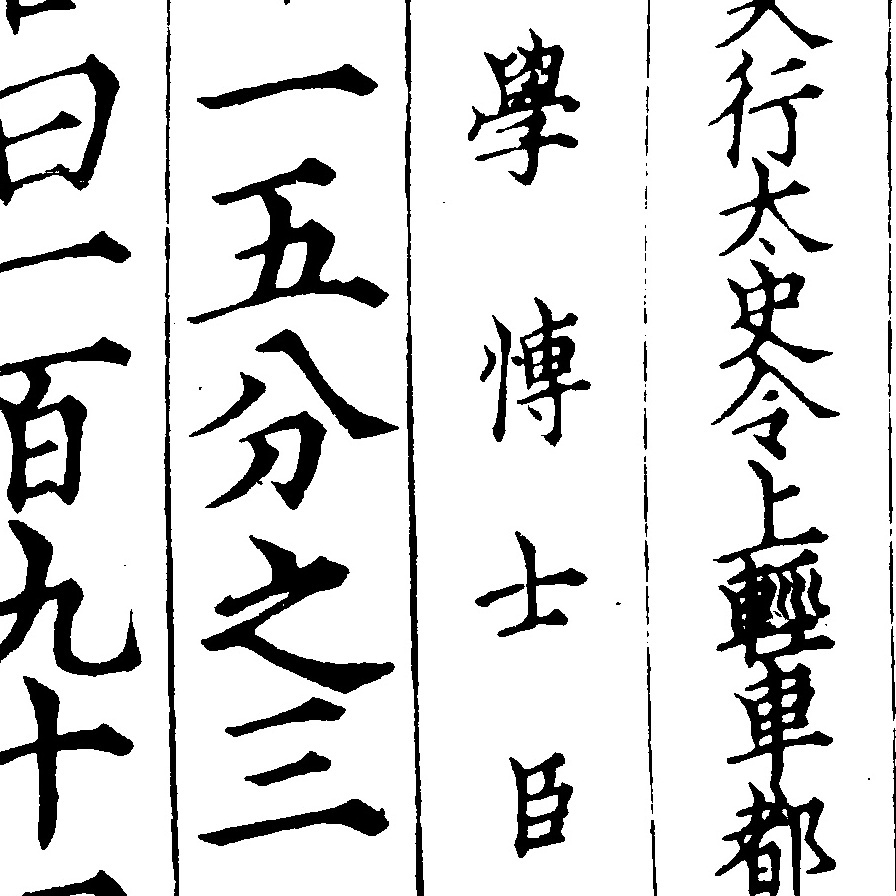 行太史令上輕車都
學博士臣
一五分之三
曰一百九十